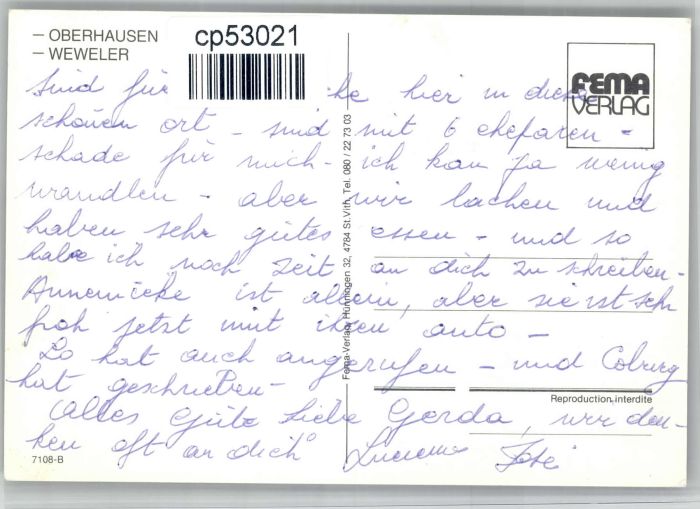 – OBERHAUSEN
– WEWELER
cp53021
FEMA
VERLAG
Fema-Verlag, Hünningen 32, 4784 St. Vith, Tel. 080 / 22 73 03
Sind für ke hier in diese
schönen ort – sind mit 6 ehefaren –
schade für mich – ich kan ja wenig
wandlen – aber wir lachen und
haben sehr gutes essen – und so
habe ich noch Zeit an dich zu schreiben –
Annemieke ist allein, aber sie ist sehr
froh jetzt mit ihren auto –
Lo hat auch angerufen – und Coburg
hat geschrieben –
Alles Gute Liebe Gerda, wir den-
ken oft an dich
Reproduction interdite
7108-B